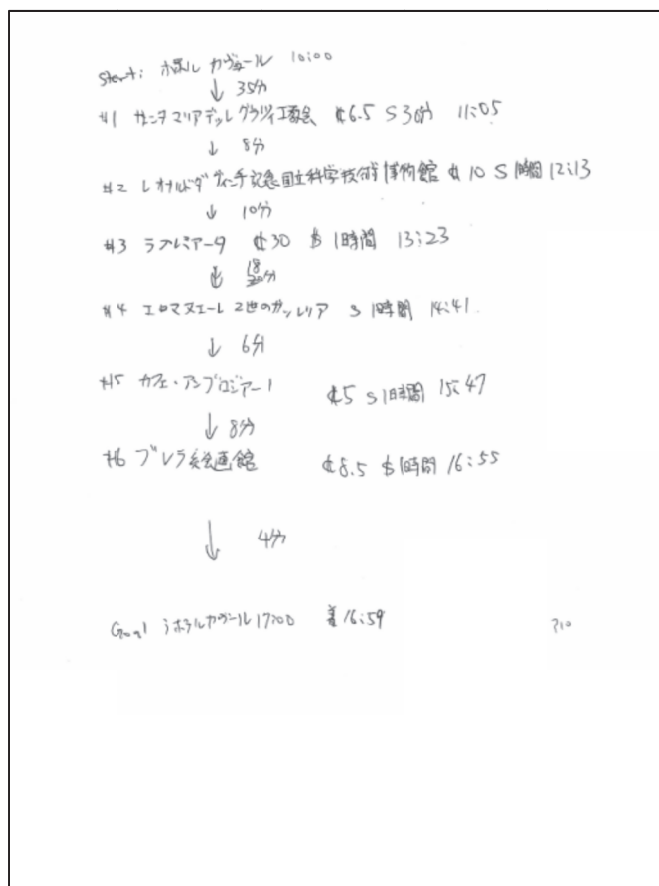 Start: ホテル カヴール 10:00
↓ 35分
#1 サンタマリアデッレグラツィエ教会 €6.5 S 30分 11:05
↓ 8分
#2 レオナルドダヴィンチ記念国立科学技術博物館 € 10 S 1時間 12:13
↓ 10分
#3 ラブルミアータ €30 S 1時間 13:23
↓ 18分
#4 エロマヌエーレ 2世のガッレリア S 1時間 14:41
↓ 6分
#5 カフェ・アンブロジアーノ €5 S 1時間 15:47
↓ 8分
#6 ブレラ絵画館 €8.5 S 1時間 16:55
↓ 4分
Goal : ホテルカヴール 17:00 着 16:59